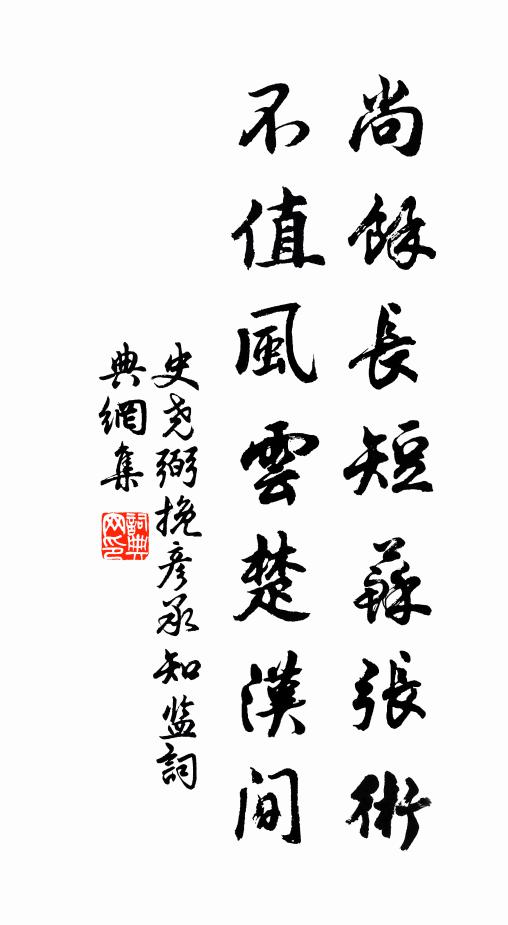 尚餘長短蘇張術
不值風雲楚漢間
史尧弼挽彦承知监詞
典網集
詞典
网印